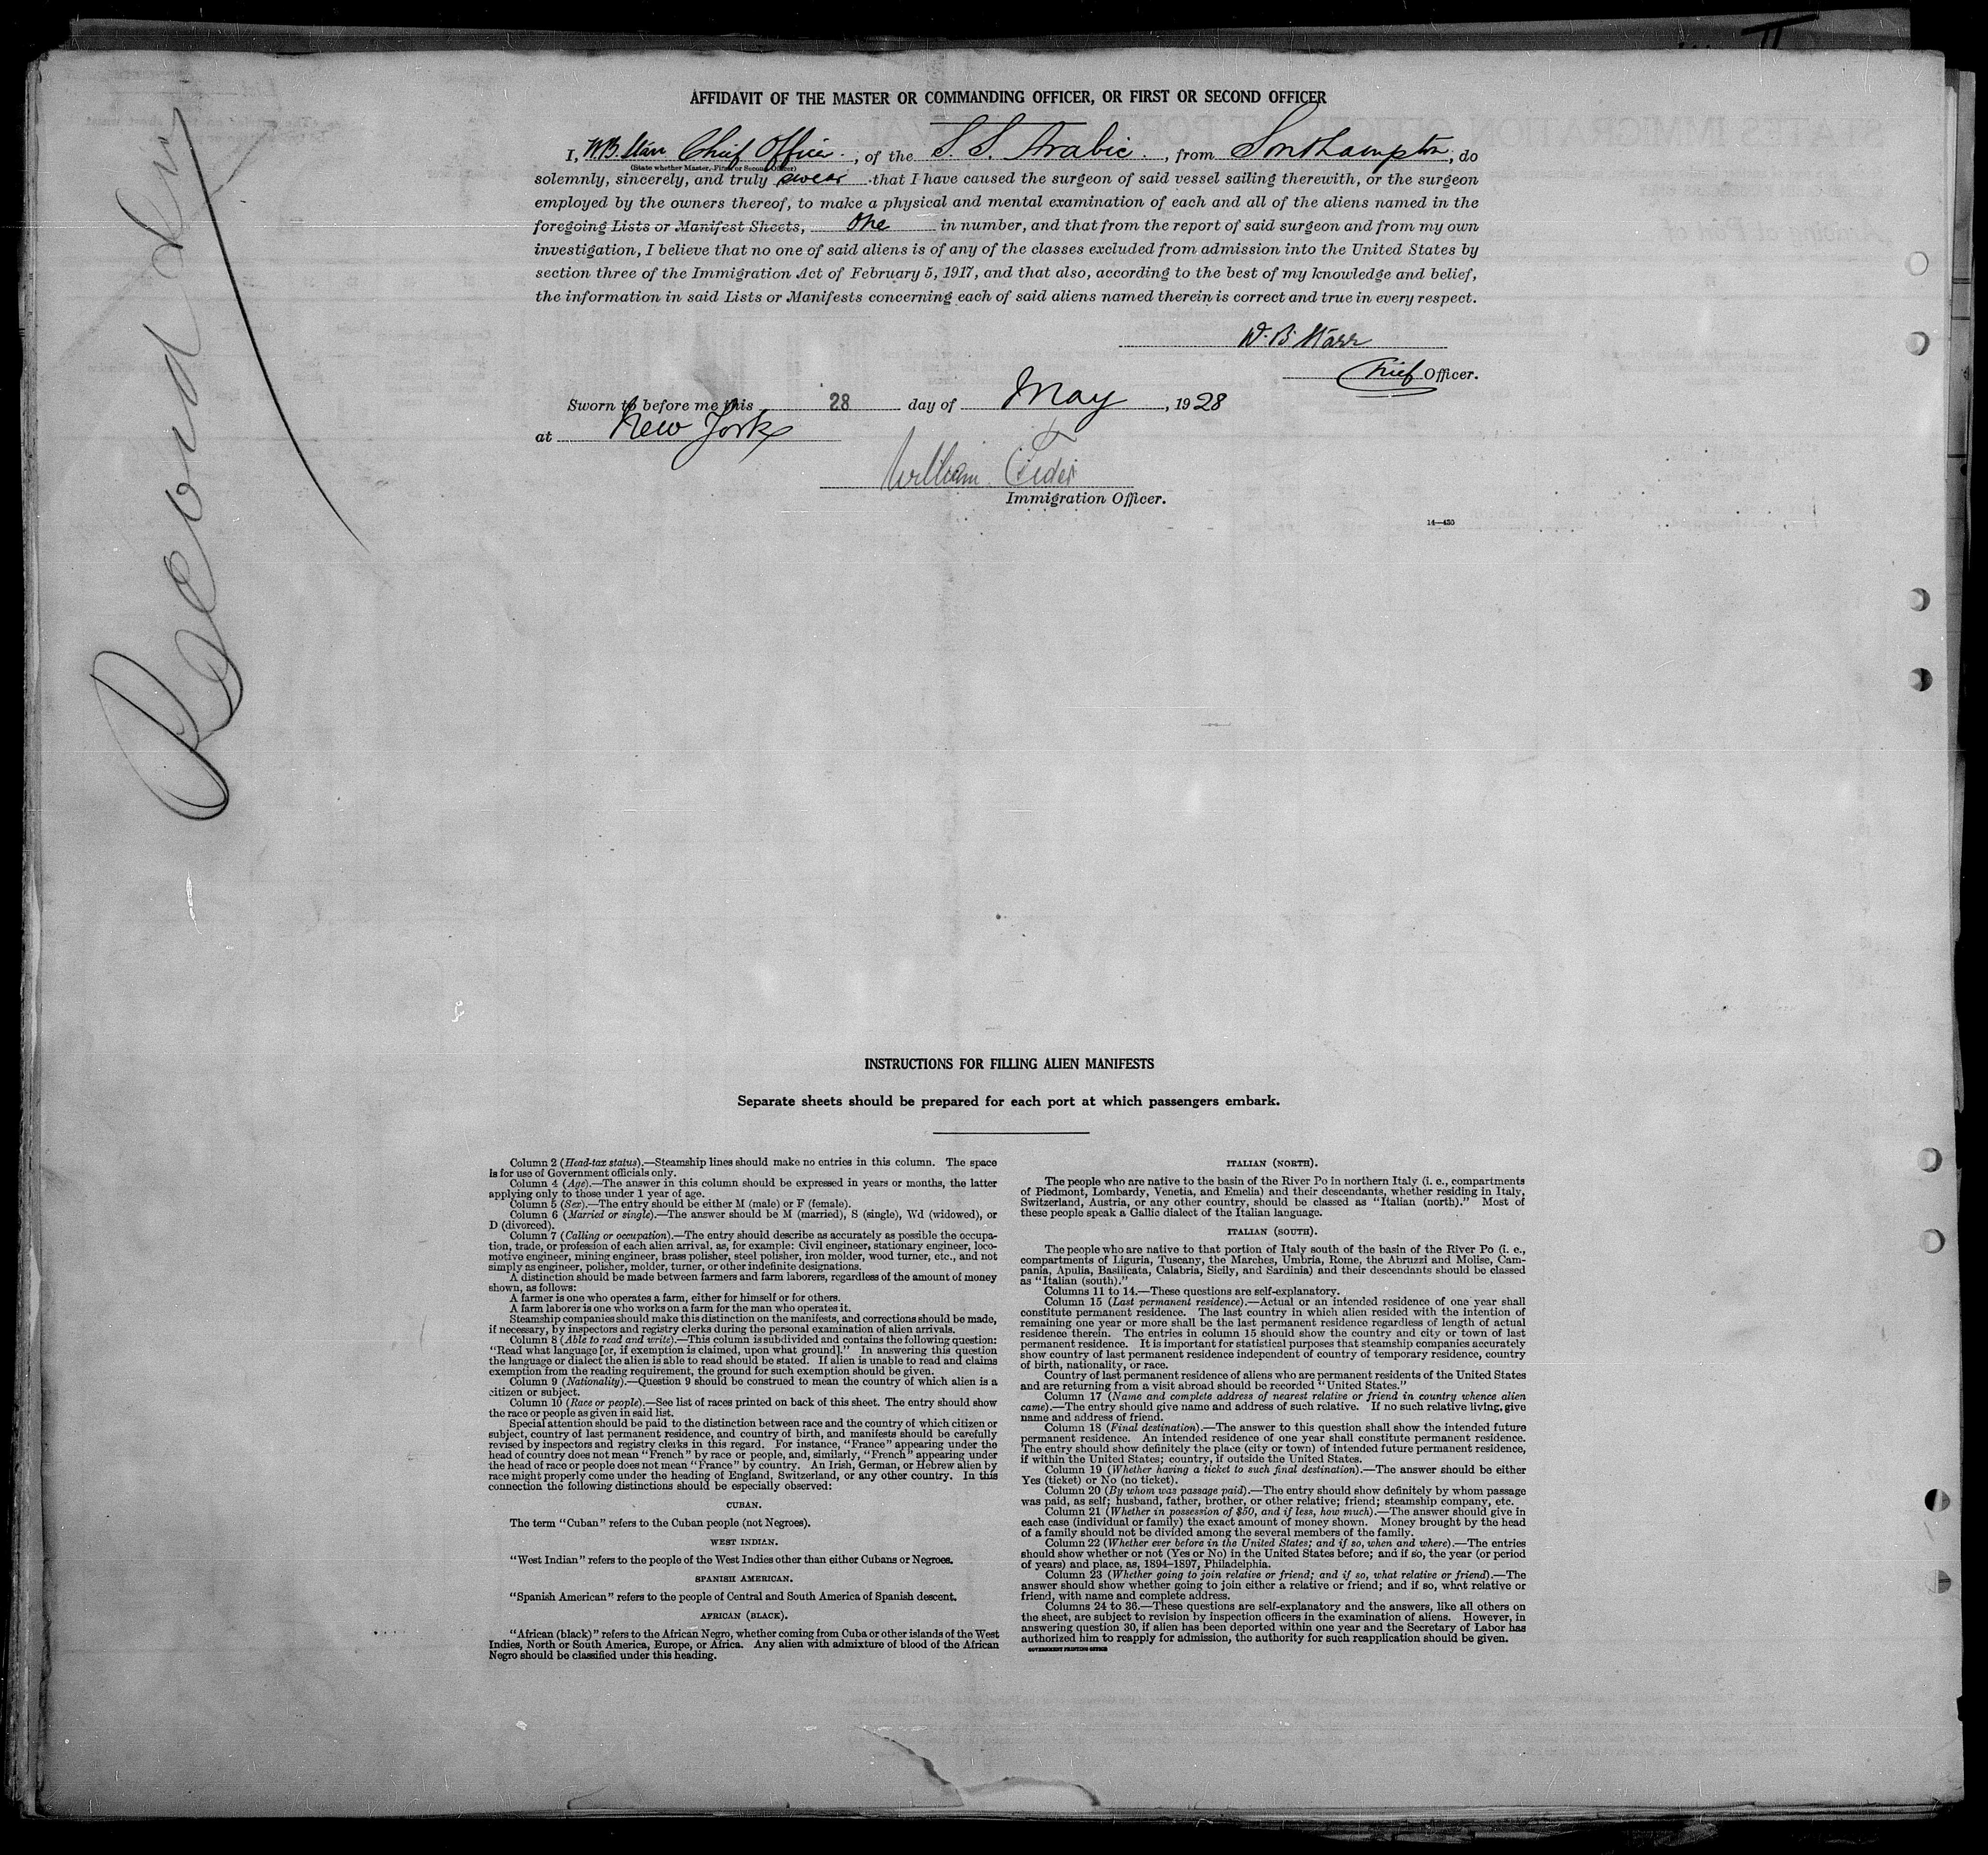 AFFIDAVIT OF THE MASTER OR COMMANDING OFFICER, OR FIRST OR SECOND OFFICER
I, W.B. Starr Chief Officer, of the S. S. Arabic, from Southampton, do
(State whether Master, First or Second Officer)
solemnly, sincerely, and truly swear that I have caused the surgeon of said vessel sailing therewith, or the surgeon
employed by the owners thereof, to make a physical and mental examination of each and all of the aliens named in the
foregoing Lists or Manifest Sheets, One in number, and that from the report of said surgeon and from my own
investigation, I believe that no one of said aliens is of any of the classes excluded from admission into the United States by
section three of the Immigration Act of February 5, 1917, and that also, according to the best of my knowledge and belief,
the information in said Lists or Manifests concerning each of said aliens named therein is correct and true in every respect.
W. B Starr
Chief Officer.
Sworn to before me this 28 day of May, 1928
at New York
William
Immigration Officer.
14—430
INSTRUCTIONS FOR FILLING ALIEN MANIFESTS
Separate sheets should be prepared for each port at which passengers embark.
Column 2 (Head-tax status).—Steamship lines should make no entries in this column. The space
is for use of Government officials only.
Column 4 (Age).—The answer in this column should be expressed in years or months, the latter
applying only to those under 1 year of age.
Column 5 (Sex).—The entry should be either M (male) or F (female).
Column 6 (Married or single).—The answer should be M (married), S (single), Wd (widowed), or
D (divorced).
Column 7 (Calling or occupation).—The entry should describe as accurately as possible the occupa-
tion, trade, or profession of each alien arrival, as, for example: Civil engineer, stationary engineer, loco-
motive engineer, mining engineer, brass polisher, steel polisher, iron molder, wood turner, etc., and not
simply as engineer, polisher, molder, turner, or other indefinite designations.
A distinction should be made between farmers and farm laborers, regardless of the amount of money
shown, as follows:
A farmer is one who operates a farm, either for himself or for others.
A farm laborer is one who works on a farm for the man who operates it.
Steamship companies should make this distinction on the manifests, and corrections should be made,
if necessary, by inspectors and registry clerks during the personal examination of alien arrivals.
Column 8 (Able to read and write).—This column is subdivided and contains the following question:
"Read what language [or, if exemption is claimed, upon what ground]." In answering this question
the language or dialect the alien is able to read should be stated. If alien is unable to read and claims
exemption from the reading requirement, the ground for such exemption should be given.
Column 9 (Nationality).—Question 9 should be construed to mean the country of which alien is a
citizen or subject.
Column 10 (Race or people).—See list of races printed on back of this sheet. The entry should show
the race or people as given in said list.
Special attention should be paid to the distinction between race and the country of which citizen or
subject, country of last permanent residence, and country of birth, and manifests should be carefully
revised by inspectors and registry clerks in this regard. For instance, "France" appearing under the
head of country does not mean "French" by race or people, and, similarly, "French" appearing under
the head of race or people does not mean "France" by country. An Irish, German, or Hebrew alien by
race might properly come under the heading of England, Switzerland, or any other country. In this
connection the following distinctions should be especially observed:
CUBAN.
The term "Cuban" refers to the Cuban people (not Negroes).
WEST INDIAN.
"West Indian" refers to the people of the West Indies other than either Cubans or Negroes.
SPANISH AMERICAN.
"Spanish American" refers to the people of Central and South America of Spanish descent.
AFRICAN (BLACK).
"African (black)" refers to the African Negro, whether coming from Cuba or other islands of the West
Indies, North or South America, Europe, or Africa. Any alien with admixture of blood of the African
Negro should be classified under this heading.
ITALIAN (NORTH).
The people who are native to the basin of the River Po in northern Italy (i. e., compartments
of Piedmont, Lombardy, Venetia, and Emelia) and their descendants, whether residing in Italy,
Switzerland, Austria, or any other country, should be classed as "Italian (north)." Most of
these people speak a Gallic dialect of the Italian language.
ITALIAN (SOUTH).
The people who are native to that portion of Italy south of the basin of the River Po (i. e.,
compartments of Liguria, Tuscany, the Marches, Umbria, Rome, the Abruzzi and Molise, Cam-
pania, Apulia, Basilicata, Calabria, Sicily, and Sardinia) and their descendants should be classed
as "Italian (south)."
Columns 11 to 14.—These questions are self-explanatory.
Column 15 (Last permanent residence).—Actual or an intended residence of one year shall
constitute permanent residence. The last country in which alien resided with the intention of
remaining one year or more shall be the last permanent residence regardless of length of actual
residence therein. The entries in column 15 should show the country and city or town of last
permanent residence. It is important for statistical purposes that steamship companies accurately
show country of last permanent residence independent of country of temporary residence, country
of birth, nationality, or race.
Country of last permanent residence of aliens who are permanent residents of the United States
and are returning from a visit abroad should be recorded "United States."
Column 17 (Name and complete address of nearest relative or friend in country whence alien
came).—The entry should give name and address of such relative. If no such relative living, give
name and address of friend.
Column 18 (Final destination).—The answer to this question shall show the intended future
permanent residence. An intended residence of one year shall constitute permanent residence.
The entry should show definitely the place (city or town) of intended future permanent residence,
if within the United States; country, if outside the United States.
Column 19 (Whether having a ticket to such final destination).—The answer should be either
Yes (ticket) or No (no ticket).
Column 20 (By whom was passage paid).—The entry should show definitely by whom passage
was paid, as self; husband, father, brother, or other relative; friend; steamship company, etc.
Column 21 (Whether in possession of $50, and if less, how much).—The answer should give in
each case (individual or family) the exact amount of money shown. Money brought by the head
of a family should not be divided among the several members of the family.
Column 22 (Whether ever before in the United States; and if so, when and where).—The entries
should show whether or not (Yes or No) in the United States before; and if so, the year (or period
of years) and place, as, 1894–1897, Philadelphia.
Column 23 (Whether going to join relative or friend; and if so, what relative or friend).—The
answer should show whether going to join either a relative or friend; and if so, what relative or
friend, with name and complete address.
Columns 24 to 36.—These questions are self-explanatory and the answers, like all others on
the sheet, are subject to revision by inspection officers in the examination of aliens. However, in
answering question 30, if alien has been deported within one year and the Secretary of Labor has
authorized him to reapply for admission, the authority for such reapplication should be given.
GOVERNMENT PRINTING OFFICE